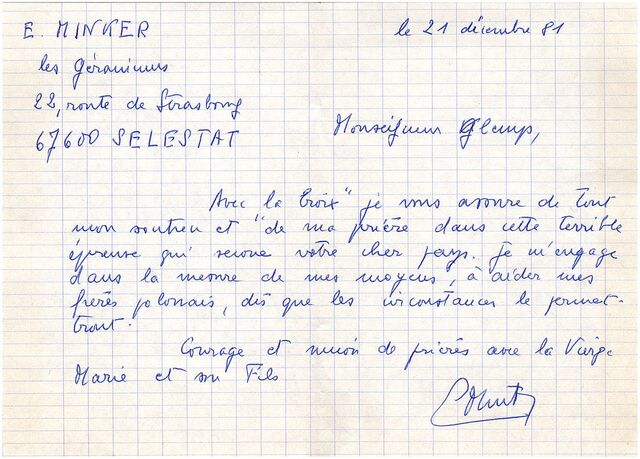 E. MINKER
le 21 décembre 81
les géraniums
22, route de Strasbourg
67600 SELESTAT
Monseigneur Glemp,
Avec la Croix" je vous assure de tout
mon soutien et "de ma prière dans cette terrible
épreuve qui secoue votre cher pays. Je m'engage
dans la mesure de mes moyens, à aider mes
frères polonais, dès que les circonstances le permet-
tront.
Courage et union de prières avec la Vierge
Marie et son Fils